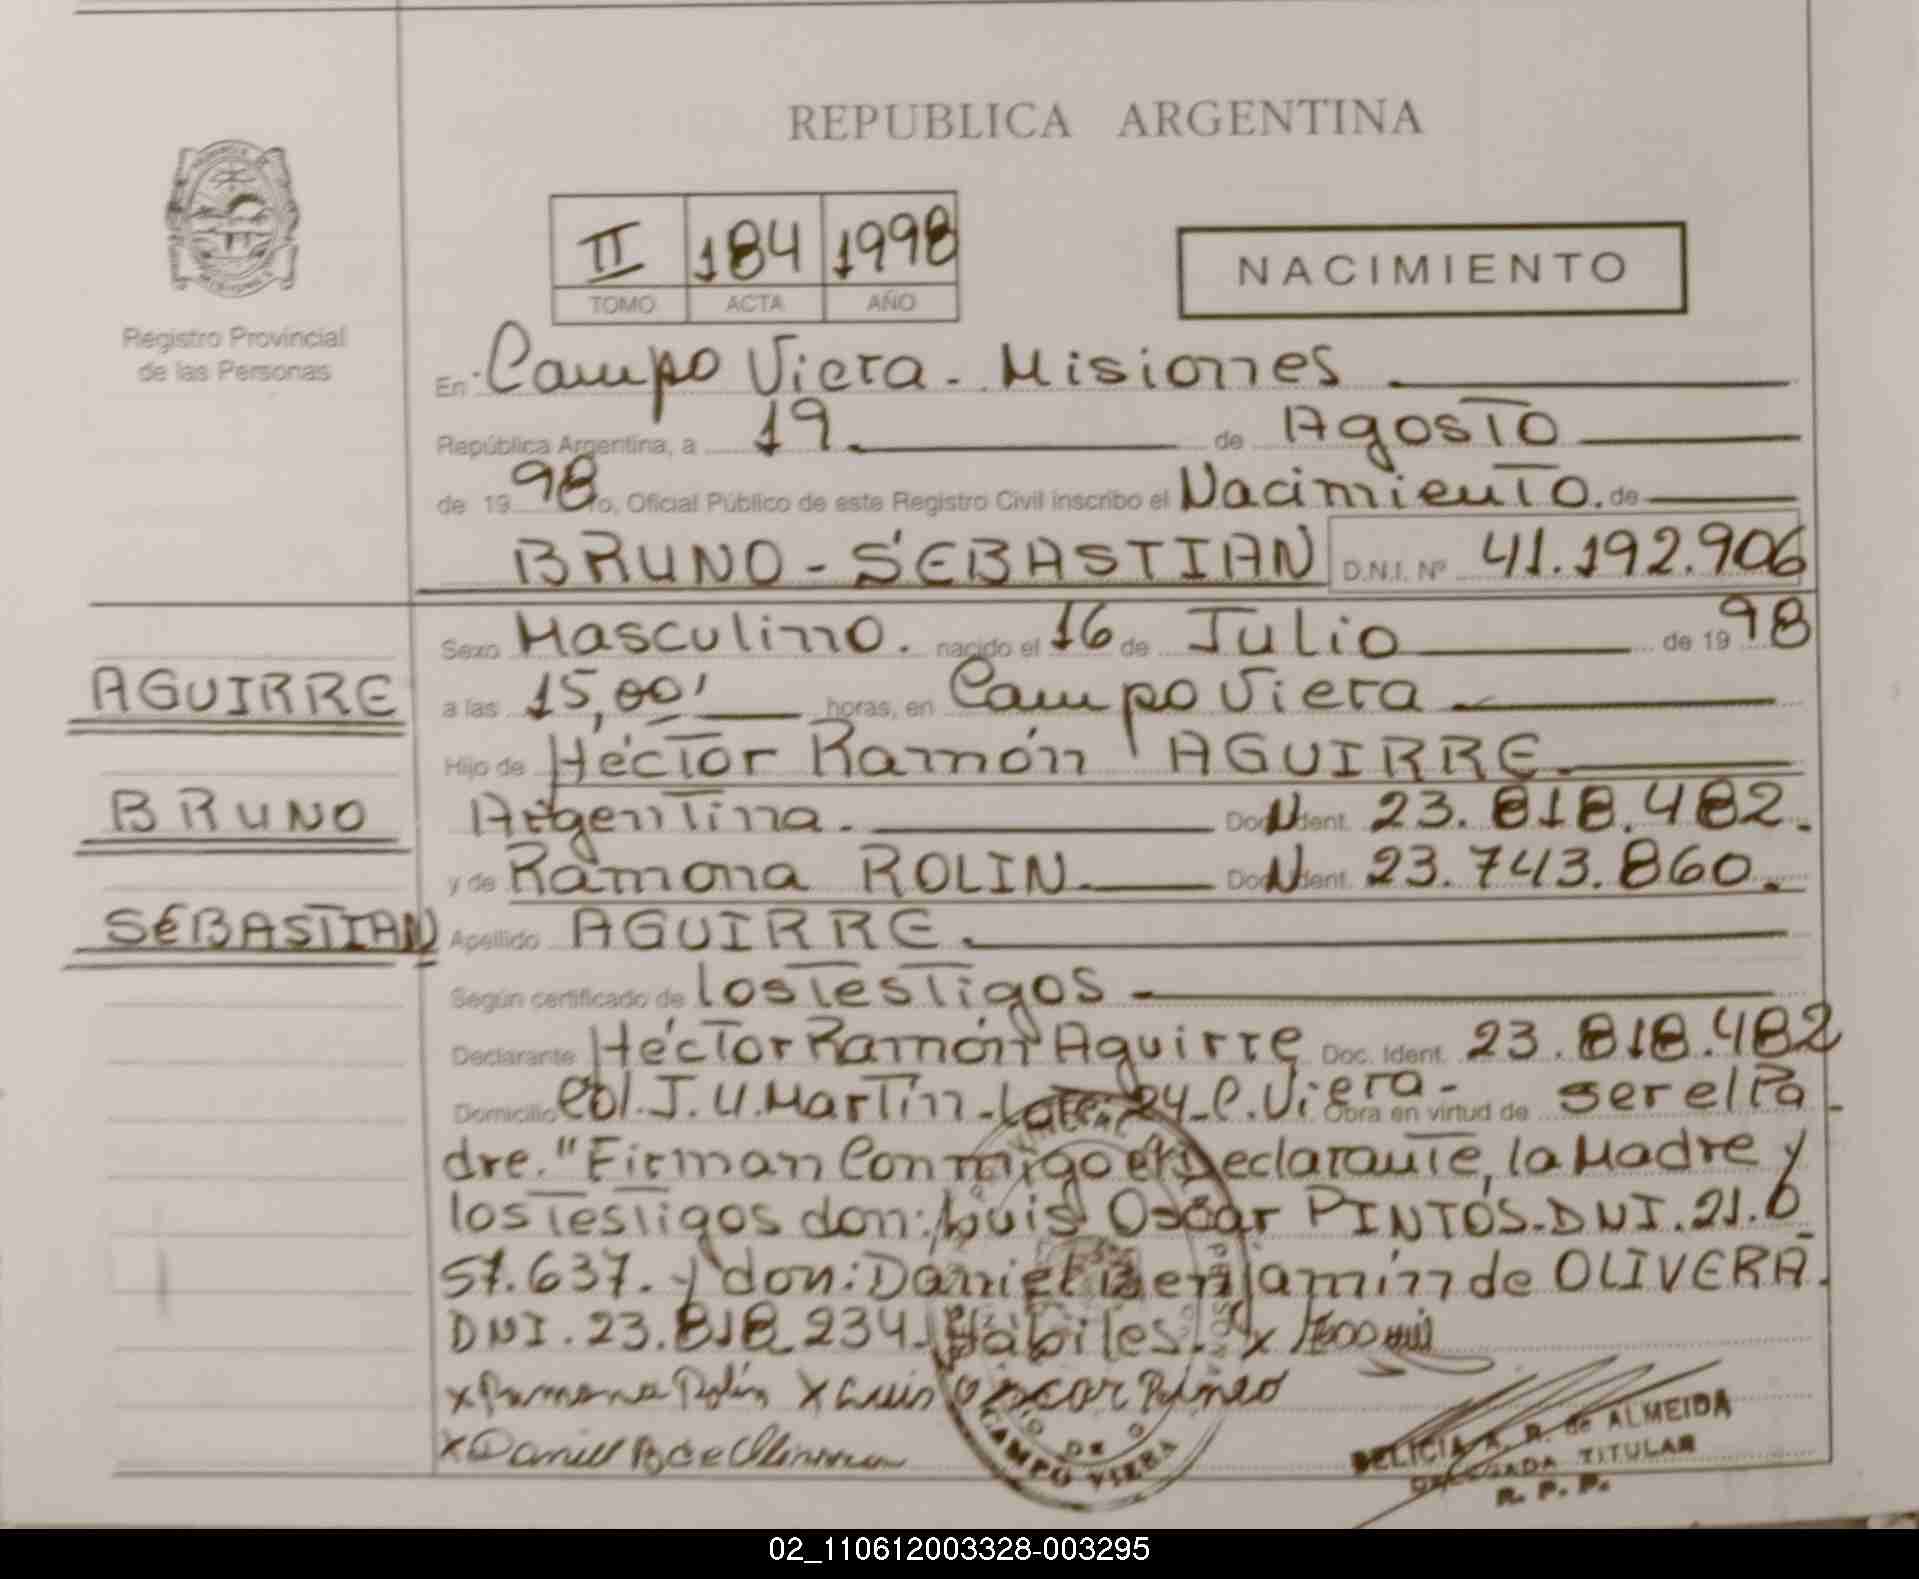 REPUBLICA ARGENTINA
II 184 1998
TOMO ACTA AÑO
NACIMIENTO
Registro Provincial
de las Personas
En Campo Viera - Misiones
República Argentina, a 19 de Agosto
de 1998 Yo, Oficial Público de este Registro Civil inscribo el Nacimiento. de
BRUNO - SEBASTIAN D.N.I. Nº 41.192.906
Sexo Masculino. nacido el 16 de Julio de 1998
AGUIRRE
a las 15,00' horas, en Campo Viera
Hijo de Héctor Ramón AGUIRRE.
BRUNO
Argentina. Doc. Ident. 23.818.482.
y de Ramona ROLIN. Doc. Ident. 23.743.860.
SEBASTIAN
Apellido AGUIRRE.
Según certificado de los Testigos -
Declarante Héctor Ramón Aguirre Doc. Ident. 23.818.482
Domicilio Col. J.U. Martín - Lote 24 - C. Viera - Obra en virtud de ser el Pa-
dre. "Firman Conmigo el Declarante, la Madre y
los Testigos don: Luis Oscar PINTOS - DNI. 21.0
57.637. y don: Daniel Benjamín de OLIVERA.
DNI. 23.818.234 - Hábiles. x
x Ramona Rolín x Luis Oscar
x Daniel B de
CAMPO VIERA
DELICIA A. R. de ALMEIDA
DELEGADA TITULAR
R. P. P.
02_110612003328-003295